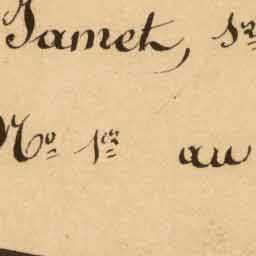 Jamet, Sr
No 1er au